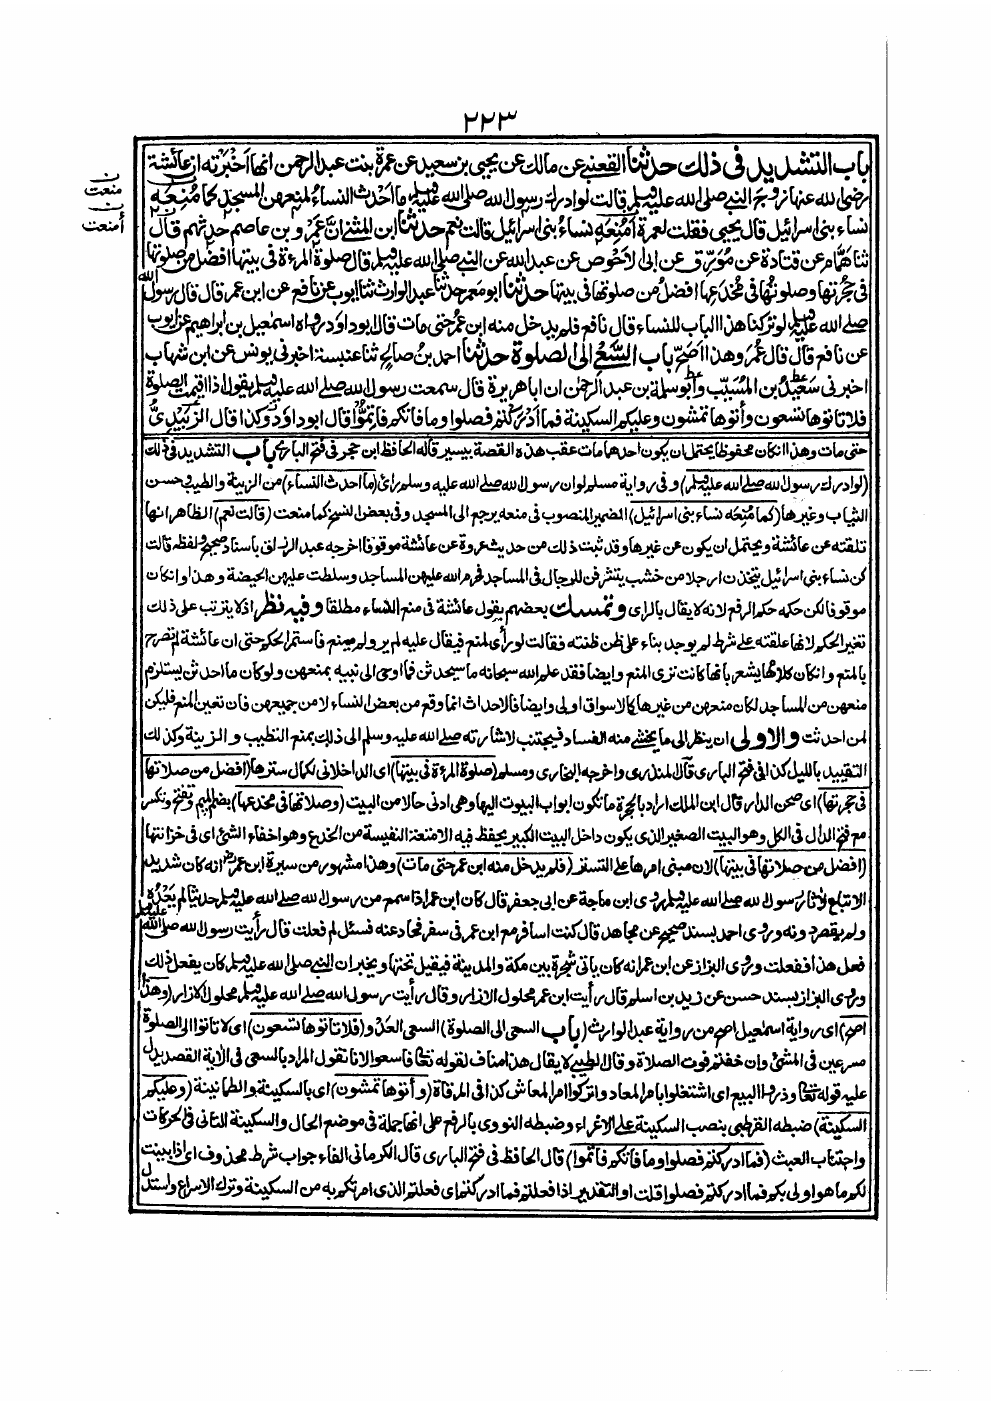 ٢٢٣
باب التشديد فى ذلك حدثنا القعنبى عن مالك عن يحيى بن سعيد عن عمرة بنت عبد الرحمن انها اخبرته ان عائشة
رضى الله عنها زوج النبى صلى الله عليه وسلم قالت لو ادرك رسول الله صلى الله عليه وسلم ما احدث النساء لمنعهن المسجد كما مُنِعَه
ن منعت
ن أمنعت
نساء بنى اسرائيل قال يحيى فقلت لعمرة أمُنِعَه نساء بنى اسرائيل قالت نعم حدثنا ابن المثنى ان عمرو بن عاصم حدثهم قال
ثنا همام عن قتادة عن مُوَرِّق عن ابى الاحوص عن عبد الله عن النبى صلى الله عليه وسلم قال صلوة المرءة فى بيتها افضل من صلوتها
فى حجرتها وصلوتُها فى مُخدَعِها افضل من صلوتها فى بيتها حدثنا ابو معمر حدثنا عبد الوارث ثنا ايوب عن نافع عن ابن عمر قال قال رسول الله
صلى الله عليه وسلم لو تركنا هذا الباب للنساء قال نافع فلم يدخل منه ابن عمر حتى مات قال ابو داود رواه اسمعيل بن ابراهيم عن ايوب
عن نافع قال قال عُمَر وهذا اَصَحّ باب السَّعْى الى الصلوة حدثنا احمد بن صالح ثنا عنبسة اخبرنى يونس عن ابن شهاب
اخبرنى سعيد بن المُسَيّب وأبو سلمة بن عبد الرحمن ان ابا هريرة قال سمعت رسول الله صلى الله عليه وسلم يقول اذا اقيمت الصلوة
فلا تاتوها تسعون وأتوها تمشون وعليكم السكينة فما ادركتم فصلوا وما فاتكم فاتمّوا قال ابو داود وكذا قال الزُبَيدىُّ
حتى مات وهذا ان كان محفوظا يحتمل ان يكون احدهما مات عقب هذه القصة بيسير قاله الحافظ ابن حجر فى فتح البارى باب التشديد فى ذلك
(لو ادرك رسول الله صلى الله عليه وسلم) وفى رواية مسلم لو ان رسول الله صلى الله عليه وسلم رأى (ما احدث النساء) من الزينة والطيب وحسن
الثياب وغيرها (كما مُنِعَه نساء بنى اسرائيل) الضمير المنصوب فى منعه يرجع الى المسجد وفى بعض النسخ كما منعت (قالت نعم) الظاهر انها
تلقته عن عائشة ويحتمل ان يكون عن غيرها وقد ثبت ذلك من حديث عروة عن عائشة موقوفا اخرجه عبد الرزاق باسناد صحيح ولفظه قالت
كن نساء بنى اسرائيل يتخذن ارجلا من خشب يتشرفن للرجال فى المساجد فحرم الله عليهن المساجد وسلطت عليهن الحيضة وهذا وان كان
موقوفا لكن حكمه حكم الرفع لانه لا يقال بالراى وتمسك بعضهم بقول عائشة فى منع النساء مطلقا وفيه نظر اذ لا يترتب على ذلك
تغير الحكم لانها علقته على شرط لم يوجد بناء على ظن ظنته فقالت لو رأى لمنع فيقال عليه لم ير ولم يمنع فاستمر الحكم حتى ان عائشة لم تصرح
بالمنع وان كان كلامها يشعر بانها كانت ترى المنع وايضا فقد علم الله سبحانه ما سيحدثن فما اوحى الى نبيه بمنعهن ولو كان ما احدثن يستلزم
منعهن من المساجد لكان منعهن من غيرها كالاسواق اولى وايضا فالاحداث انما وقع من بعض النساء لا من جميعهن فان تعين المنع فليكن
لمن احدثت والاولى ان ينظر الى ما يخشى منه الفساد فيجتنب لاشارته صلى الله عليه وسلم الى ذلك بمنع التطيب والزينة وكذلك
التقييد بالليل كذا فى فتح البارى قال المنذرى واخرجه البخارى ومسلم (صلوة المرءة فى بيتها) اى الداخلانى لكمال سترها (افضل من صلاتها
فى حجرتها) اى صحن الدار قال ابن الملك اراد بالحجرة ما تكون ابواب البيوت اليها وهى ادنى حالا من البيت (وصلاتها فى مخدعها) بضم الميم وتفتح وتكسر
مع فتح الدال فى الكل وهو البيت الصغير الذى يكون داخل البيت الكبير يحفظ فيه الامتعة النفيسة من الخدع وهو اخفاء الشئ اى فى خزانتها
(افضل من صلاتها فى بيتها) لان مبنى امرها على التستر (فلم يدخل منه ابن عمر حتى مات) وهذا مشهور من سيرة ابن عمر انه كان شديد
الاتباع لآثار رسول الله صلى الله عليه وسلم روى ابن ماجة عن ابى جعفر قال كان ابن عمر اذا سمع من رسول الله صلى الله عليه وسلم حديثا لم يَعْدُه
ولم يقصر دونه وروى احمد بسند صحيح عن مجاهد قال كنت اسافر مع ابن عمر فى سفر فحاد عنه فسئل لم فعلت قال رأيت رسول الله صلى الله عليه وسلم
فعل هذا ففعلت وروى البزار عن ابن عمر انه كان ياتى شجرة بين مكة والمدينة فيقيل تحتها ويخبر ان النبى صلى الله عليه وسلم كان يفعل ذلك
وروى البزار بسند حسن عن زيد بن اسلم قال رأيت ابن عمر محلول الازار وقال رأيت رسول الله صلى الله عليه وسلم محلول الازار (وهذا
اصح) اى رواية اسمعيل اصح من رواية عبد الوارث (باب السعى الى الصلوة) السعى العَدْو (فلا تاتوها تسعون) اى لا تاتوا الى الصلوة
مسرعين فى المشى وان خفتم فوت الصلاة وقال الطيبى لا يقال هذا مناف لقوله تعالى فاسعوا لانا نقول المراد بالسعى فى الآية القصد يدل
عليه قوله تعالى وذروا البيع اى اشتغلوا بامر المعاد واتركوا امر المعاش كذا فى المرقاة (وأتوها تمشون) اى بالسكينة والطمانينة (وعليكم
السكينة) ضبطه القرطبى بنصب السكينة على الاغراء وضبطه النووى بالرفع على انها جملة فى موضع الحال والسكينة التانى فى الحركات
واجتناب العبث (فما ادركتم فصلوا وما فاتكم فاتموا) قال الحافظ فى فتح البارى قال الكرمانى الفاء جواب شرط محذوف اى اذا بينت
لكم ما هو اولى بكم فما ادركتم فصلوا قلت او التقدير اذا فعلتم فما ادركتم اى فعلتم الذى امرتكم به من السكينة وترك الاسراع واستدل